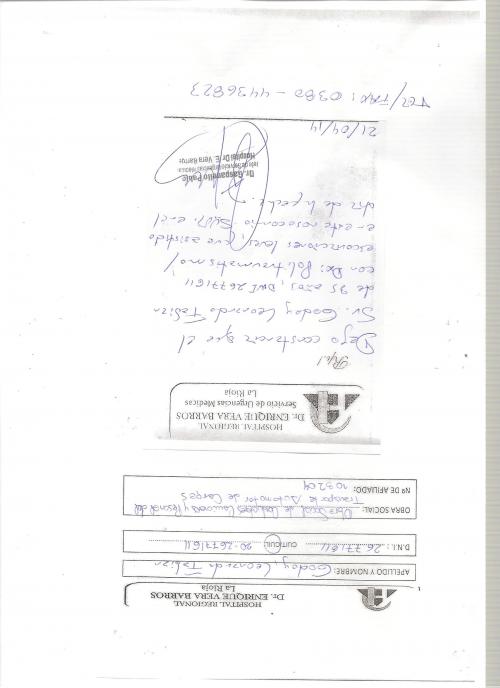 HOSPITAL REGIONAL
Dr. ENRIQUE VERA BARROS
La Rioja
APELLIDO Y NOMBRE: Godoy, Leonardo Fabian
D.N.I.: 26771611 CUIT/CUIL: 20-26771611
OBRA SOCIAL: Obra Social de Camioneros y Personal del
Transporte Automotor de Cargas
Nº DE AFILIADO: 103204
HOSPITAL REGIONAL
Dr. ENRIQUE VERA BARROS
Servicio de Urgencias Medicas
La Rioja
Dejo constancia que el
Sr. Godoy Leonardo Fabian
de 35 años, DNI 26771611
con Dx: Politraumatismo/
escoriaciones leves, fue asistido
en este nosocomio, en el
día de la fecha.
Dr. Gasparello Pablo
Hospital Dr. E. Vera Barros
21/04/14
Tel/FAX: 0380 - 4436823